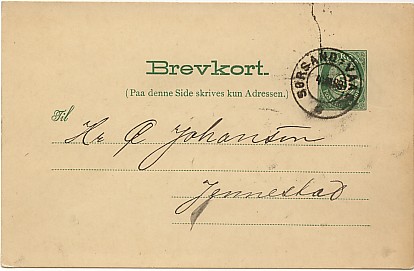 Brevkort.
(Paa denne Side skrives kun Adressen.)
SØRSAND-VAA
Til
Hr Ø Johansen
Jennestad